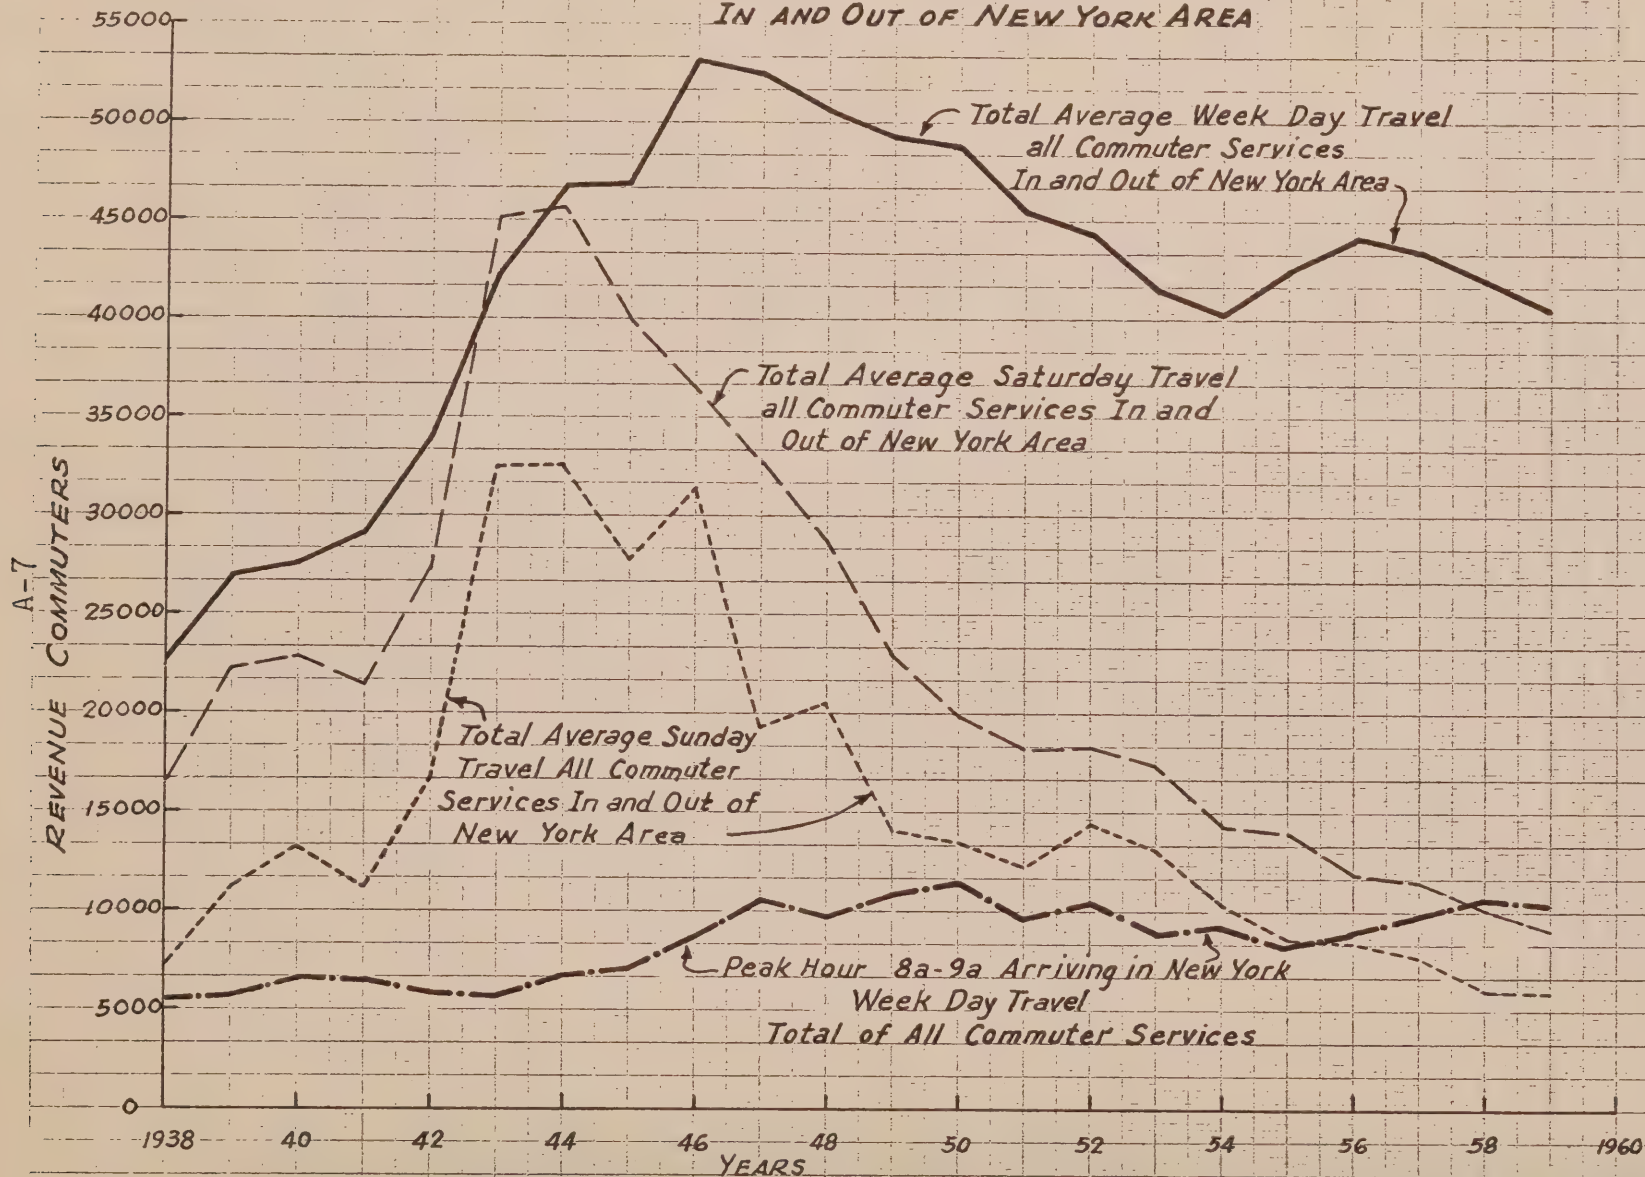 IN AND OUT OF NEW YORK AREA
55000
50000
45000
40000
35000
30000
25000
20000
15000
10000
5000
0
A-7
REVENUE COMMUTERS
Total Average Week Day Travel
all Commuter Services
In and Out of New York Area
Total Average Saturday Travel
all Commuter Services In and
Out of New York Area
Total Average Sunday
Travel All Commuter
Services In and Out of
New York Area
Peak Hour 8a-9a Arriving in New York
Week Day Travel
Total of All Commuter Services
1938 40 42 44 46 48 50 52 54 56 58 1960
YEARS